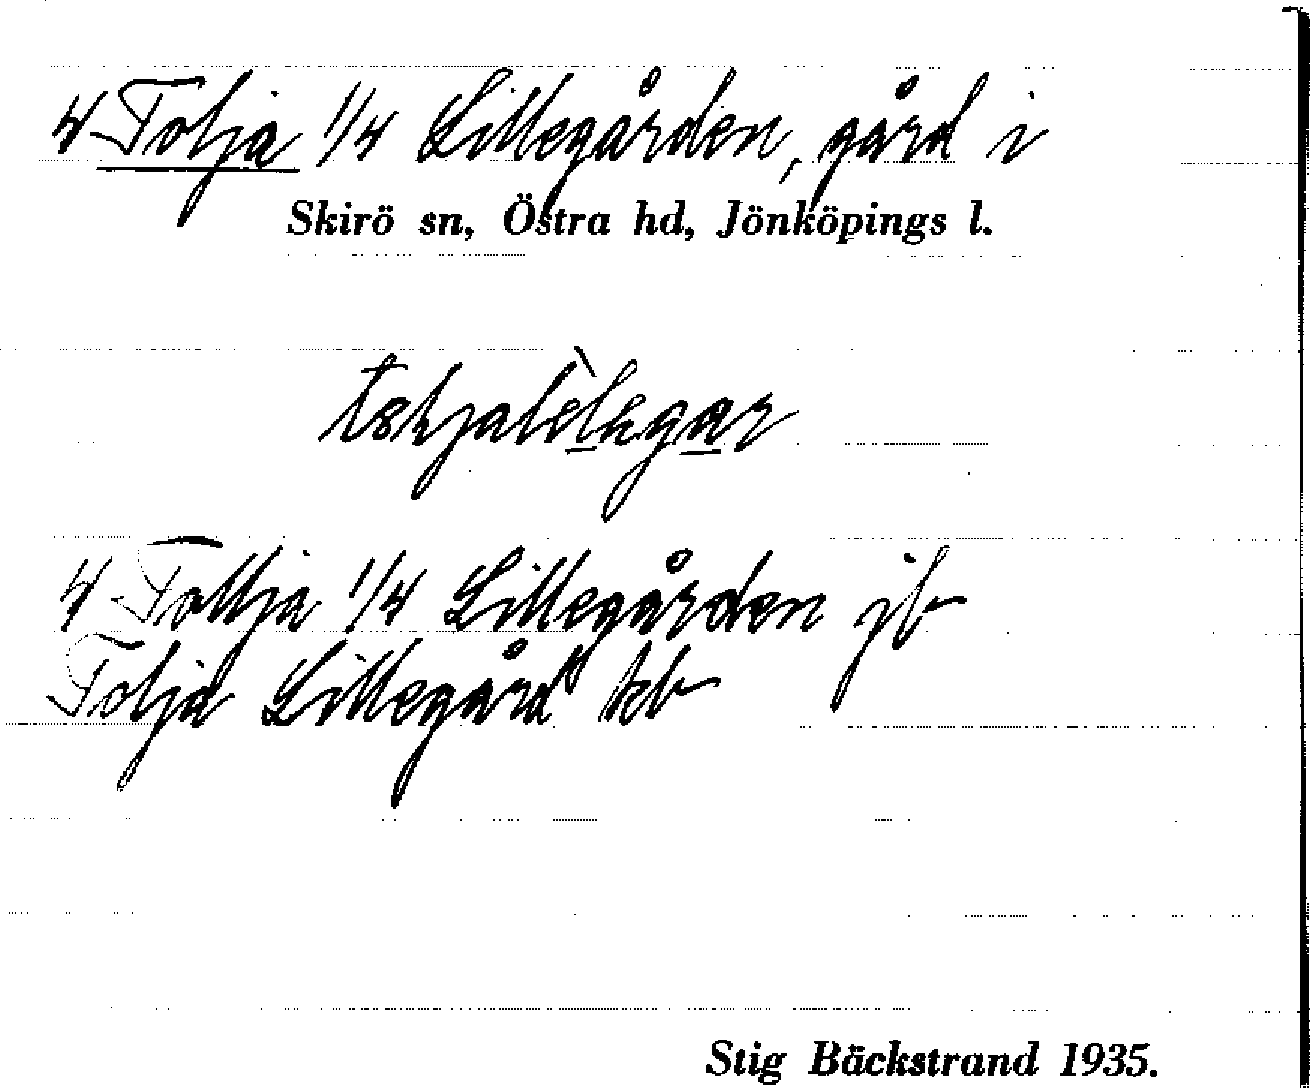 4 Tolja 1/4 Lillegården, gård i
Skirö sn, Östra hd, Jönköpings l.
4 Tollja 1/4 Lillegården jb
Tolja Lillegård kb
Stig Bäckstrand 1935.